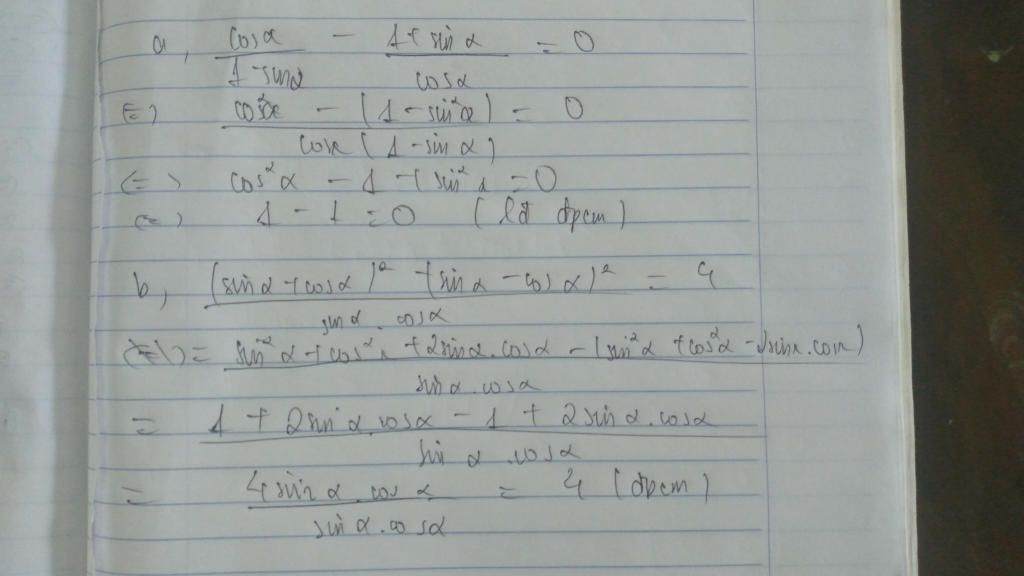 a, cosα/(1-sinα) - (1+sinα)/cosα = 0
(=) (cos²α - (1-sin²α))/(cosα(1-sinα)) = 0
(=) cos²α - 1 + sin²α = 0
(=) 1 - 1 = 0 (lđ đpcm)
b, ((sinα+cosα)² - (sinα-cosα)²)/(sinα.cosα) = 4
= (sin²α+cos²α+2sinα.cosα-(sin²α+cos²α-2sinα.cosα))/(sinα.cosα)
= (1+2sinα.cosα-1+2sinα.cosα)/(sinα.cosα)
= (4sinα.cosα)/(sinα.cosα) = 4 (đpcm)